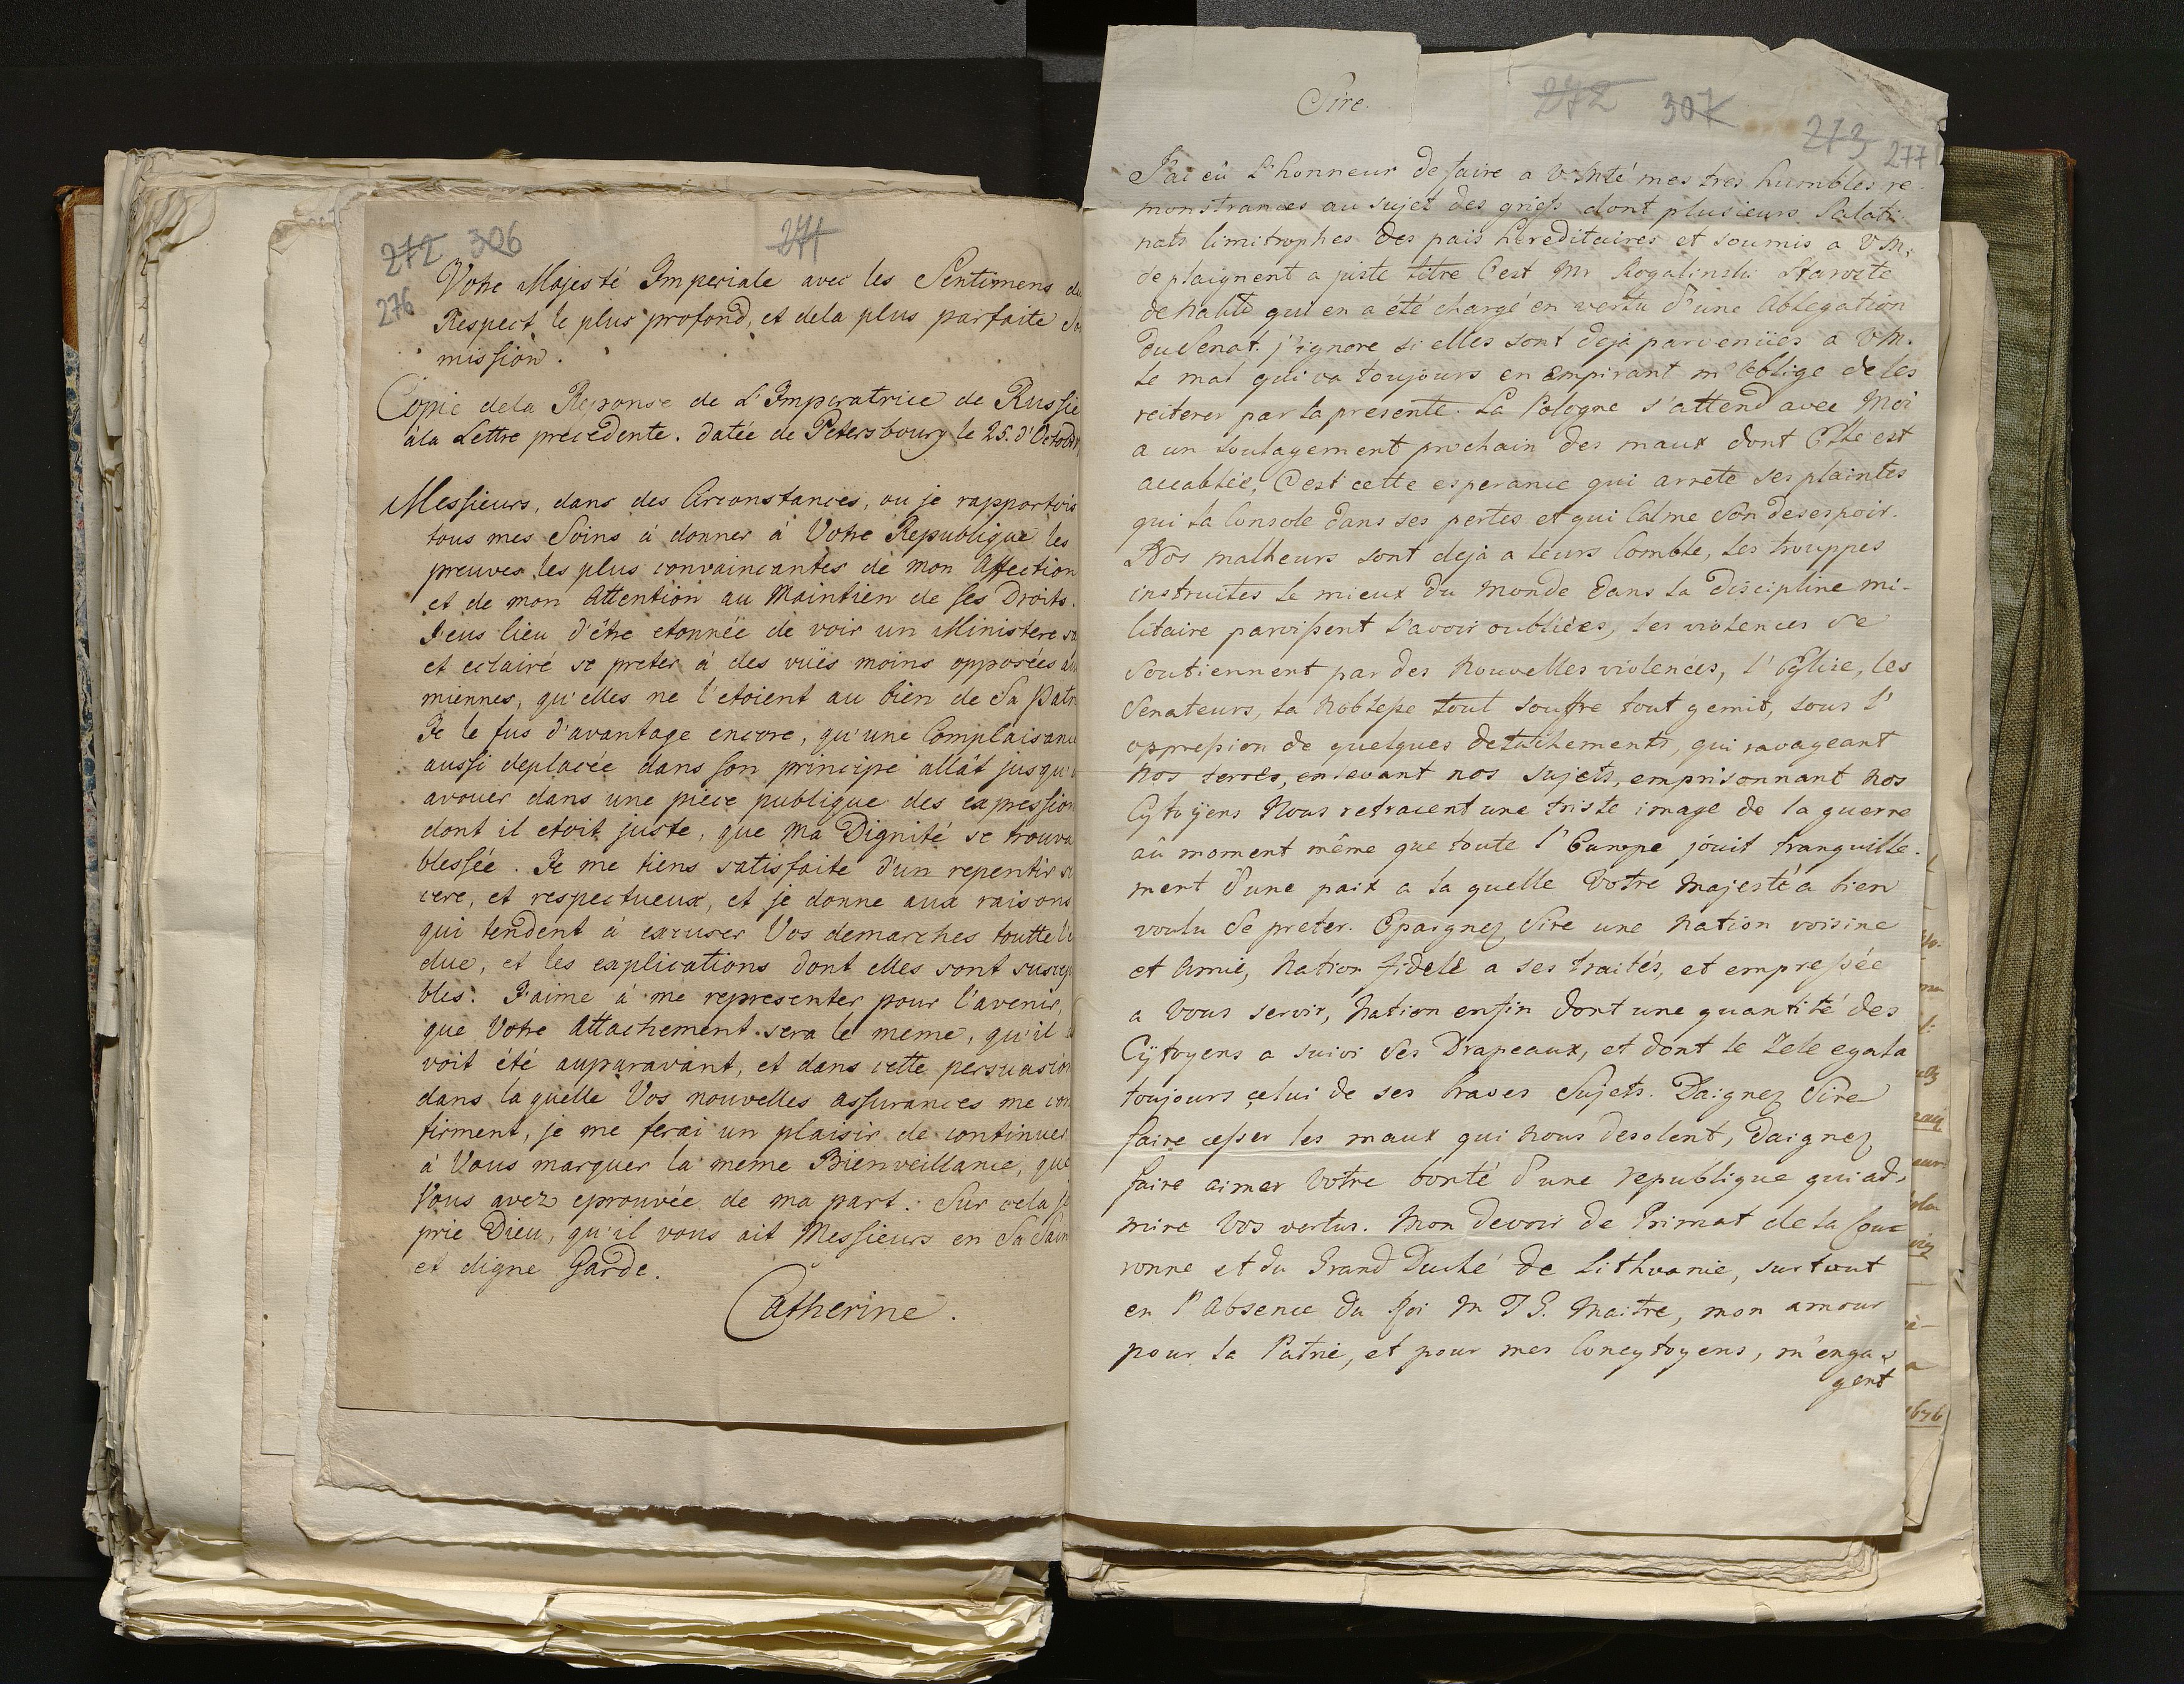 272 306 271
276
Votre Majesté Imperiale avec les Sentimens du
Respect le plus profond, et dela plus parfaite So
mission.
Copie dela Reponse de L'Imperatrice de Russie
à la Lettre precedente. datée de Petersbourg le 25. d'Octobr
Messieurs, dans des Circonstances, ou je rapportois
tous mes Soins à donner à Votre Republique les
preuves les plus convaincantes de mon Affection
et de mon Attention au Maintien de ses Droits.
J'eus lieu d'être etonnée de voir un Ministere sa
et eclairé se preter à des vuës moins opposées a
miennes, qu'elles ne l'etoient au bien de Sa Patr
Je le fus d'avantage encore, qu'une Complaisance
aussi deplacée dans son principe allât jusqu'
avouer dans une pièce publique des expression
dont il etoit juste, que Ma Dignité se trouva
blessée. Je me tiens satisfaite d'un repentir si
cere, et respectueux, et je donne aux raisons
qui tendent à excuser Vos demarches toutte l'
due, et les explications dont elles sont suscep
bles. J'aime à me representer pour l'avenir,
que Votre Attachement sera le meme, qu'il a
voit été auparavant, et dans cette persuasion
dans laquelle Vos nouvelles assurances me con
firment, je me ferai un plaisir de continuer
à Vous marquer la meme Bienveillance, que
Vous avez eprouvée de ma part. Sur cela je
prie Dieu, qu'il vous ait Messieurs en Sa Sain
et digne Garde.
Catherine.
272 307
273 277
Sire.
J'ai eû L'honneur de faire a V. Mté mes tres humbles re-
monstrances au sujet des griefs dont plusieurs Palati-
nats limitrophes des pais hereditaires et soumis a V M.
se plaignent a juste titre C'est Mr Rogalinski Staroste
de Nakło qui en a été chargé en vertu d'une Ablegation
du Senat. j'ignore si elles sont deja parvenües a V M.
Le mal qui va toujours en Empirant m'oblige de les
reiterer par la presente. La Pologne s'attend avec Moi
a un soulagement prochain des maux dont Elle est
accablée, C'est cette esperance qui arrete ses plaintes
qui la Console dans ses pertes et qui Calme Son desespoir.
Nos malheurs sont deja a leurs Comble, les trouppes
instruites le mieux du monde dans la Discipline mi-
litaire paroissent l'avoir oubliées, les violences se
Soutiennent par des Nouvelles violences, l'Eglise, les
Senateurs, la Noblesse tout souffre tout gemit, sous l'
oppression de quelques detachements, qui ravageant
Nos terres, enlevant nos sujets, emprisonnant Nos
Cytoÿens Nous retracent une triste image de la guerre
aû moment même que toute l'Europe jouit tranquille-
ment d'une paix a la quelle Votre Majesté a bien
voulu Se preter. Epargnez Sire une Nation voisine
et Amie, Nation fidele a ses traités, et empressée
a Vous servir, Nation enfin dont une quantité des
Cÿtoyens a suivi ses Drapeaux, et dont le Zele egala
toujours celui de ses braves Sujets. Daignez Sire
faire cesser les maux qui Nous desolent, Daignez
faire aimer Votre bonté d'une republique qui ad-
mire Vos vertus. Mon Devoir de Primat de la Cou-
ronne et du Grand Duché de Lithvanie, surtout
en l'Absence du Roi M T G. Maitre, mon amour
pour la Patrie, et pour mes Concytoyens, m'enga-
gent